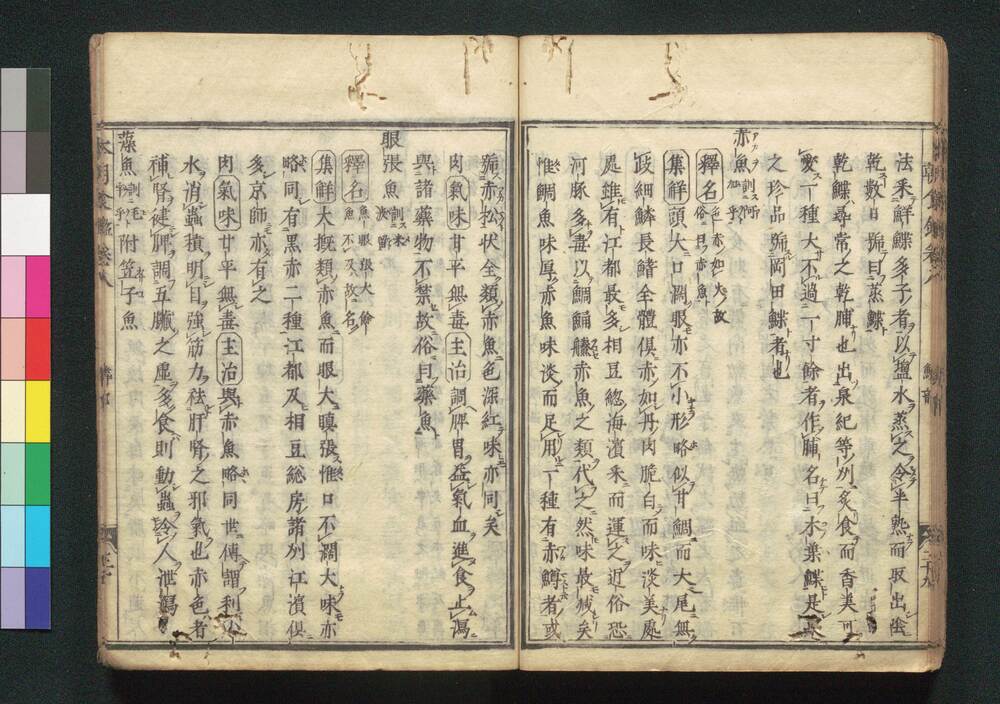 法采鮮鰈多子者以塩水蒸之令半熟而取出陰
乾數日號曰蒸鰈
乾鰈尋常之乾脯也出泉紀等州炙食而香美可
愛一種大不過一寸餘者作脯名曰木葉鰈是亦
之珍品號岡田鰈者也
赤魚訓阿加乎
釋名色赤如火故俗曰赤魚
集解頭大口闊眼亦不小形略似甘鯛而大尾無
岐細鱗長鰭全體俱赤如丹肉脆白而味淡美處
處雖有江都最多相豆総海濱采而運之近俗恐
河豚多毒以鯛鯿赤魚之類代之然味最減矣
惟鯛魚味厚赤魚味淡而足用一種有赤鱒者或
號赤松状全類赤魚色深紅味亦同矣
肉氣味甘平無毒主治調脾胃益氣血進食止瀉
與諸藥物不禁故俗曰藥魚
眼張魚
釋名魚眼張大餘魚不及故名
集解大抵類赤魚而眼大瞋張惟口不濶大味亦
略同有黒赤二種江都及相豆総房諸州江濱俱
多京師亦有之
肉氣味甘平無毒主治與赤魚略同世傳謂利
水消蟲積明目強筋力祛肝腎之邪氣也赤色者
補腎健脾調五臟之虚多食則動蟲令人泄瀉
藻魚訓毛乎附笠子魚